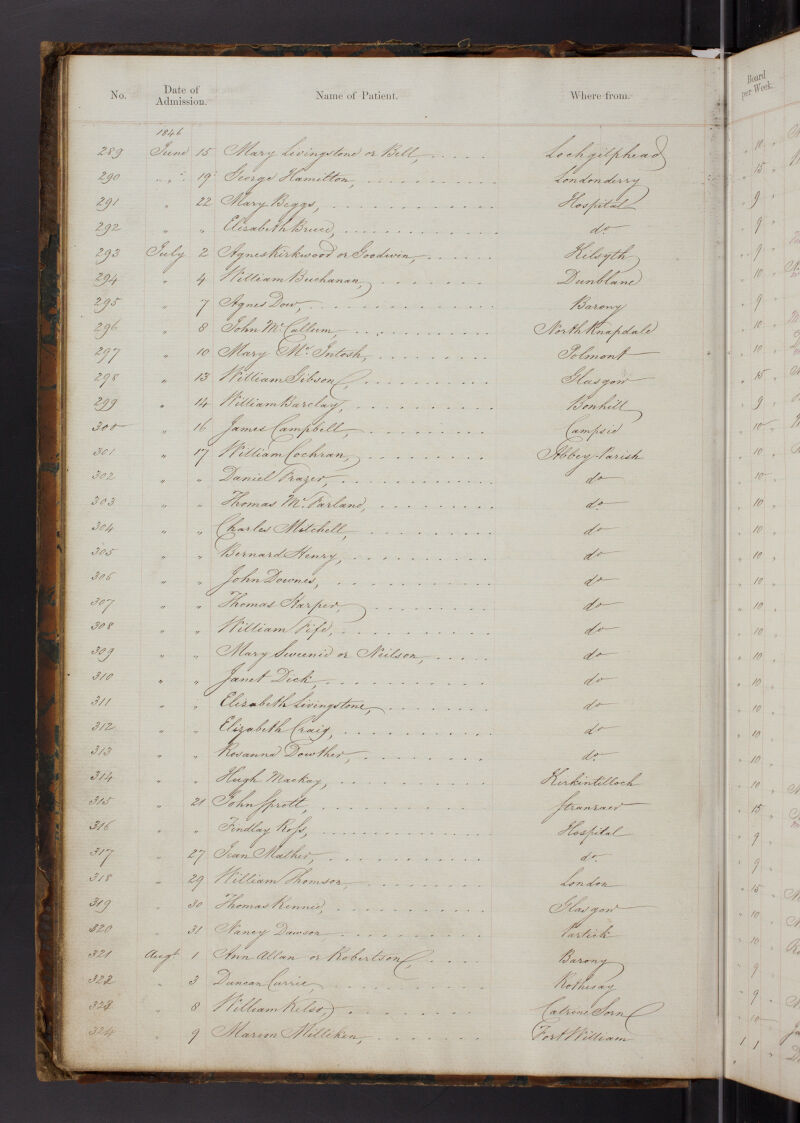 No. Date of Admission. Name of Patient. Where from. Board per Week.
1846
289 June 15 Mary Livingstone or Bell, Lochgilphead 10 "
290 " " 19 George Hamilton, Londonderry 15 "
291 " 22 Mary Beggs, Hospital 9 "
292 " " Elizabeth Bruce, do 9 "
293 July 2 Agnes Kirkwood or Goodwin, Kilsyth 9 "
294 " 4 William Buchanan, Dunblane 10 "
295 " 7 Agnes Dow, Barony 9 "
296 " 8 John McCallum North Knapdale 10 "
297 " 10 Mary McIntosh, Polmont 10 "
298 " 13 William Gibson, Glasgow 15 "
299 " 14 William Barclay, Bonhill 9 "
300 " 16 James Campbell, Campsie 10 "
301 " 17 William Cochran, Abbey Parish 10 "
302 " " Daniel Frazer, do 10 "
303 " " Thomas McFarland, do 10 "
304 " " Charles Mitchell, do 10 "
305 " " Bernard Henry, do 10 "
306 " " John Downes, do 10 "
307 " " Thomas Harper, do 10 "
308 " " William Fife, do 10 "
309 " " Mary Sweenie or Neilson, do 10 "
310 " " Janet Dick, do 10 "
311 " " Elizabeth Livingstone, do 10 "
312 " " Elizabeth Craig, do 10 "
313 " " Rosanna Dowther, do 10 "
314 " " Hugh Mackay, Kirkintilloch 10 "
315 " 21 John Sprott, Stranraer 15 "
316 " " Findlay Ross, Hospital 9 "
317 " 27 Jean Mather, do 9 "
318 " 29 William Thomson, London 15 "
319 " 30 Thomas Rennie, Glasgow 10 "
320 " 31 Nancy Dawson Partick 10 "
321 Augt 1 Ann Allan or Robertson, Barony 9 "
322 " 3 Duncan Currie, Rothesay 9 "
323 " 8 William Kelso, Catrine Sorn 10
324 " 9 Marion Milliken, Fort William 1 1 "